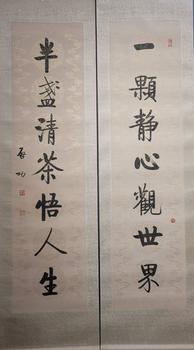 一顆静心觀世界
半盏清茶悟人生
啟功